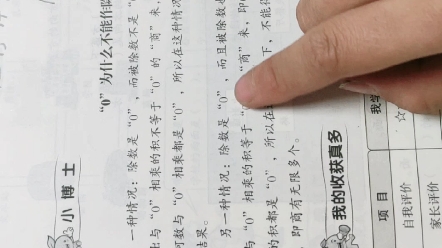 小博士
"0"为什么不能作除
一种情况：除数是"0"，而被除数不是"0"
出与"0"相乘的积不等于"0"的"商"来，
可数与"0"相乘都是"0"，所以在这种情况
结果。
另一种情况：除数是"0"，而且被除数
与"0"相乘的积等于"0 "商"来，即
的积都是"0"，所以在 下，不能得
即商有无限多个。
我的收获真多
项目 我学
自我评价 ☆
家长评价